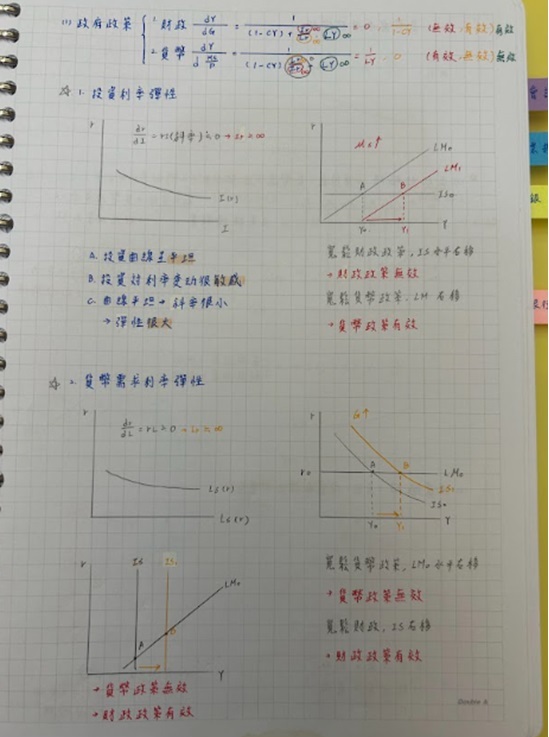 (1) 政府政策 { 1. 財政 dY/dG = 1/((1-CY)+ ... LY ∞) = 0, 1/(1-CY) (無效, 有效) 有效
2. 貨幣 dY/d(Ms/P) = 1/((1-CY) ... LY ∞) = 1/LY, 0 (有效, 無效) 無效
☆ 1. 投資利率彈性
r
dr/dI = rI (斜率) ≒ 0 → Ir ≒ ∞
I(r)
I
r
Ms↑
LM₀
LM₁
A
B
IS₀
Y₀
Y₁
Y
A. 投資曲線呈平坦
B. 投資對利率變動很敏感
C. 曲線平坦 → 斜率很小
→ 彈性很大
寬鬆財政政策, IS水平右移
→ 財政政策無效
寬鬆貨幣政策, LM 右移
→ 貨幣政策有效
☆ 2. 貨幣需求利率彈性
r
dr/dL = rL ≒ 0 → Lr ≒ ∞
Ls(r)
Ls(r)
r
G↑
r₀
A
B
LM₀
IS₁
IS₀
Y₀
Y₁
Y
r
IS
IS₁
LM₀
A
B
Y
→ 貨幣政策無效
→ 財政政策有效
寬鬆貨幣政策, LM₀水平右移
→ 貨幣政策無效
寬鬆財政, IS右移
→ 財政政策有效